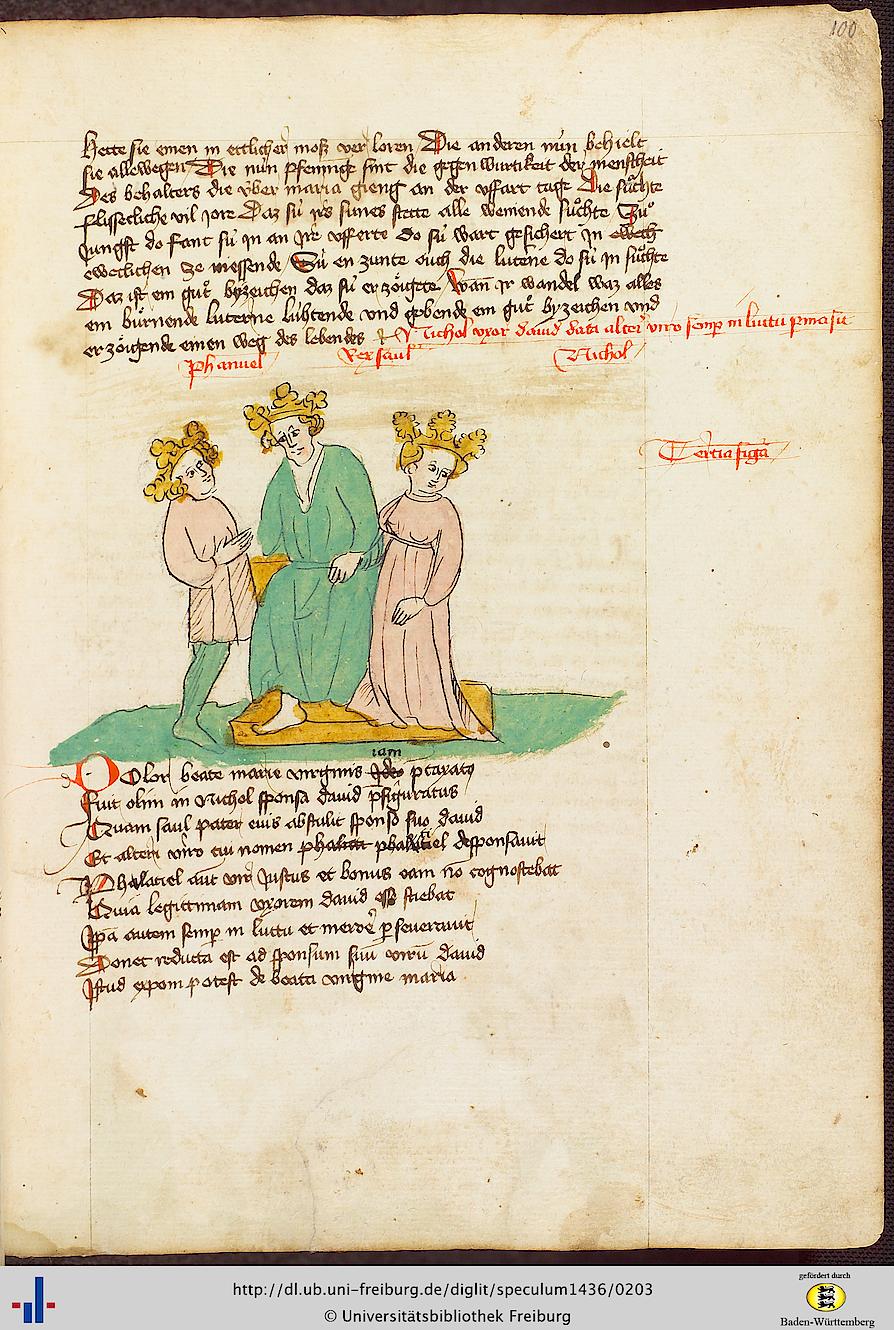 100
Hette sie einen in ettlicher moß ver loren Die anderen nün behielt
sie allewegen Die nün pfenninge sint die gegenwurtikeit der menscheit
Des behalters die vber maria gieng an der vffart tage Die sůchte
flissecliche vil jore Daz sü irs sunes stette alle weinende sůchte Zů
Jungst do fant sü jn an jre vfferte do sü wart gesichert jn
eweclichen ze niessende Sü en zunte ouch die lucerne do sü jn sůchte
Daz ist ein gůt byzeichen daz sü er zöigete Wan jr wandel waz alles
ein bürnende lucerne lühtende vnd gebende ein gůt byzeichen vnd
er zöigende einen weg des lebendes
Nichol vxor dauid data alteri viro semp in luctu pmasit
Phanuel Rex saul Nichol
Tertia figa
iam
Dolor beate marie virginis ptaxatg
Fuit olim in Nichol sponsa dauid pfiguratus
Quam saul pater eius abstulit sponso suo dauid
Et alteri viro cui nomen phalatiel desponsauit
Phalatiel aut vir Justus et bonus eam no cognoscebat
Quia legittimam vxorem dauid esse sciebat
Ipa autem semp in luctu et merore pseuerauit
Donec reducta est ad sponsum suu viru dauid
Istud exponi potest de beata virgine maria
http://dl.ub.uni-freiburg.de/diglit/speculum1436/0203
© Universitätsbibliothek Freiburg
gefördert durch
Baden-Württemberg